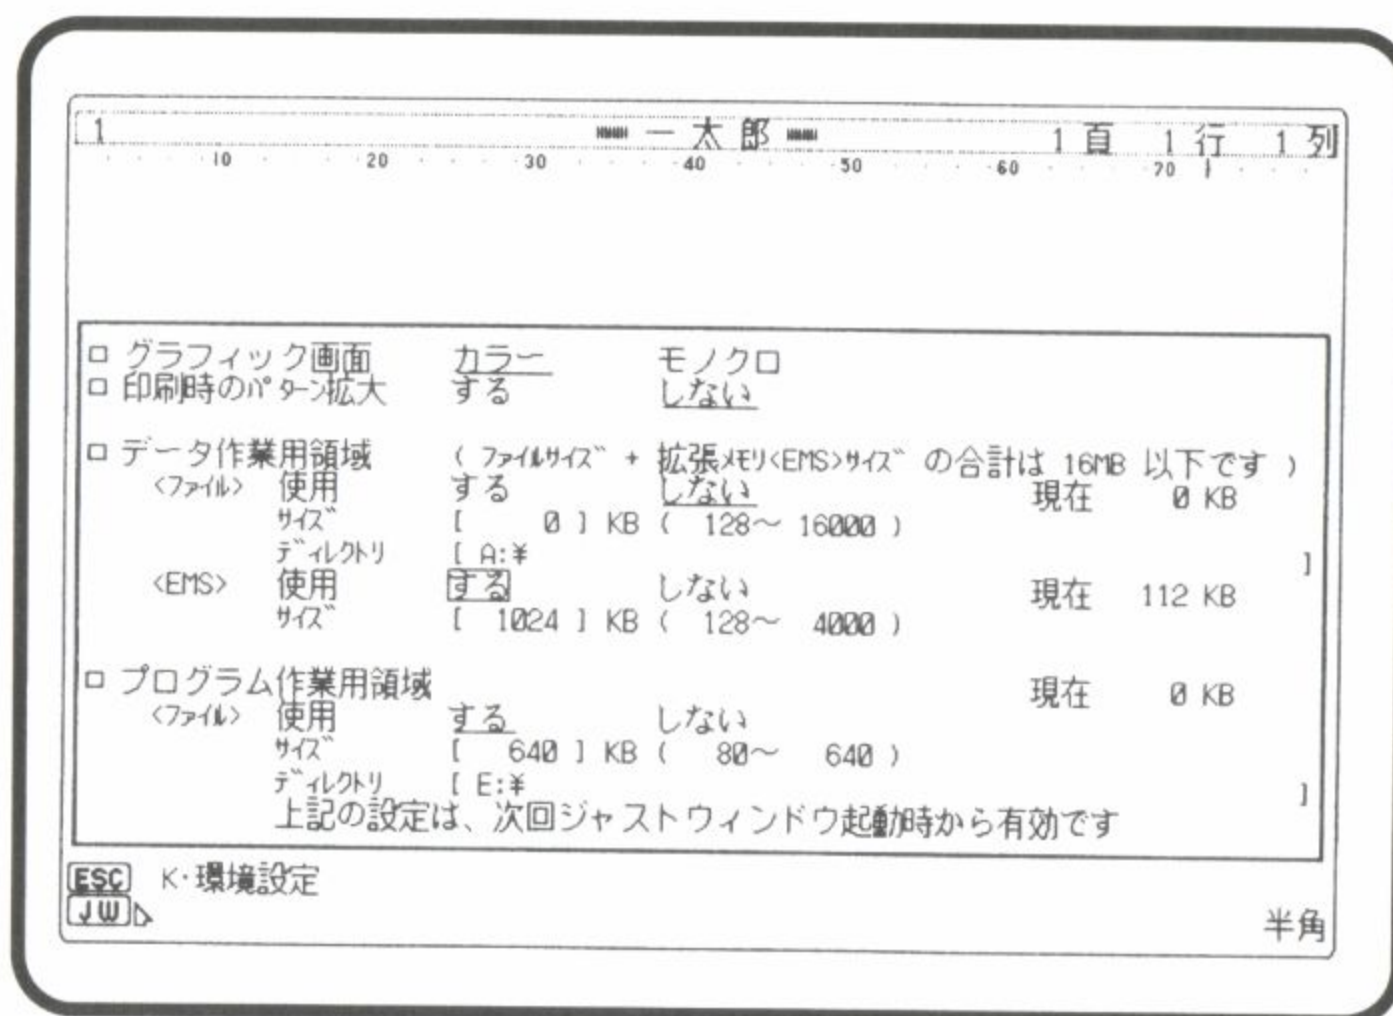 1 一太郎 1頁 1行 1列
10 20 30 40 50 60 70
□ グラフィック画面 カラー モノクロ
□ 印刷時のﾊﾟﾀｰﾝ拡大 する しない
□ データ作業用領域 ( ﾌｧｲﾙｻｲｽﾞ + 拡張ﾒﾓﾘ<EMS>ｻｲｽﾞ の合計は 16MB 以下です )
<ﾌｧｲﾙ> 使用 する しない 現在 0 KB
ｻｲｽﾞ [ 0 ] KB ( 128〜 16000 )
ﾃﾞｨﾚｸﾄﾘ [ A:¥ ]
<EMS> 使用 する しない 現在 112 KB
ｻｲｽﾞ [ 1024 ] KB ( 128〜 4000 )
□ プログラム作業用領域 現在 0 KB
<ﾌｧｲﾙ> 使用 する しない
ｻｲｽﾞ [ 640 ] KB ( 80〜 640 )
ﾃﾞｨﾚｸﾄﾘ [ E:¥ ]
上記の設定は、次回ジャストウィンドウ起動時から有効です
ESC K・環境設定
JW 半角